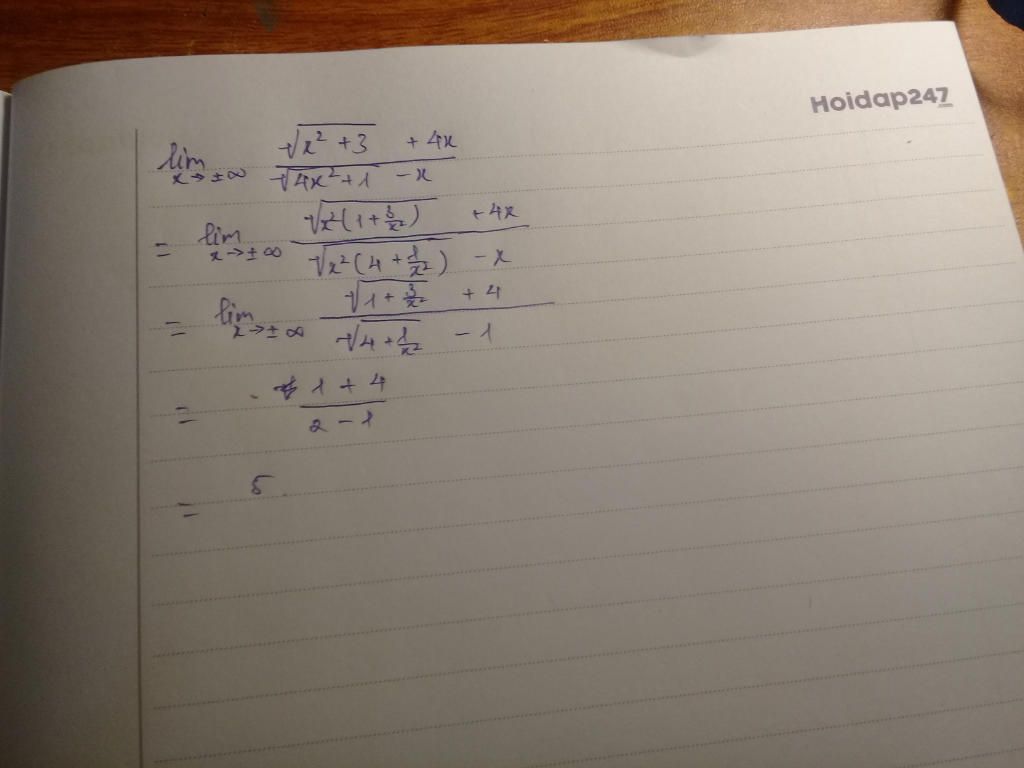 Hoidap247
lim x→±∞ (√(x² + 3) + 4x) / (√(4x² + 1) − x)
= lim x→±∞ (√(x²(1 + 3/x²)) + 4x) / (√(x²(4 + 1/x²)) − x)
= lim x→±∞ (√(1 + 3/x²) + 4) / (√(4 + 1/x²) − 1)
= (1 + 4) / (2 − 1)
= 5